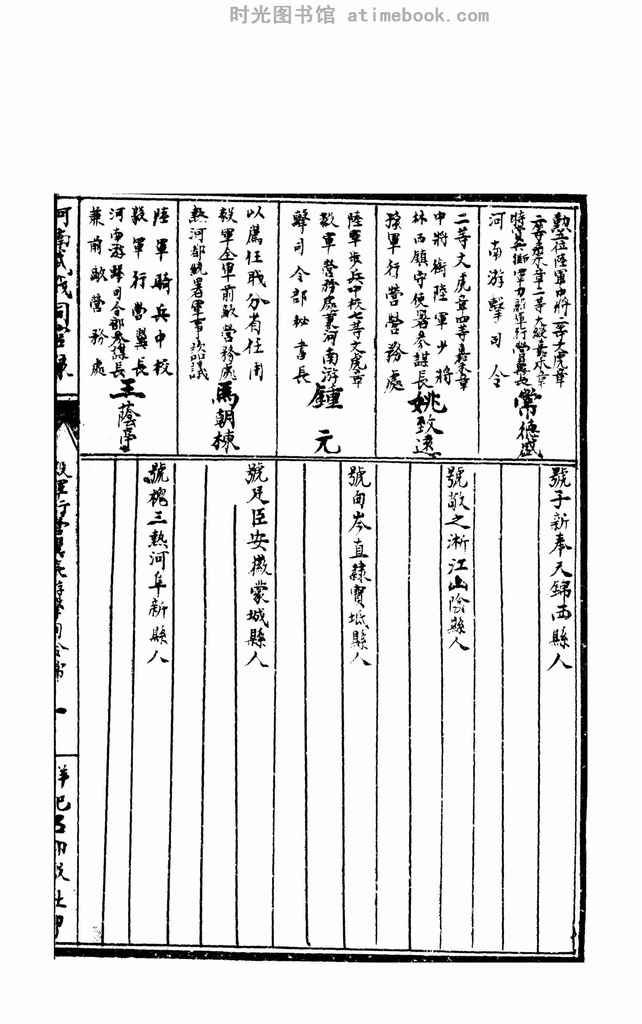 时光图书馆 atimebook.com
勳五位陸軍中將二等大虎章
二等嘉禾章二等大綬嘉禾章
河南游擊司令
常德盛
號子新奉天錦西縣人
二等文虎章四等嘉禾章
中將銜陸軍少將
林西鎮守使署參謀長
毅軍行營營務處
姚致遠
號敬之浙江山陰縣人
陸軍步兵中校七等文虎章
毅軍營務處兼河南游
擊司令部秘書長
鍾元
號向岑直隸寶坻縣人
以薦任職分省任用
毅軍全軍前敵營務處
熱河都統署軍事諮議
馬朝棟
號廷臣安徽蒙城縣人
陸軍騎兵中校
毅軍行營翼長
河南游擊司令部參謀長
兼前敵營務處
王蔭亭
號槐三熱河阜新縣人
毅軍行營翼長游擊司令部
一